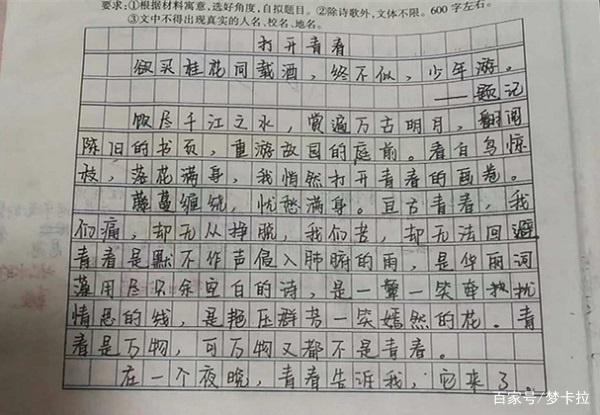 要求:①根据材料寓意,选好角度,自拟题目。②除诗歌外,文体不限。600字左右。
③文中不得出现真实的人名、校名、地名。
打开青春
欲买桂花同载酒,终不似,少年游。
——题记
饮尽千江之水,赏遍万古明月,翻阅
陈旧的书页,重游故园的庭前。看白鸟惊
枝,落花满身,我悄然打开青春的画卷。
藤蔓缠绕,忧愁满身。亘古青春,我
们痛,却无从挣脱,我们苦,却无法回避
青春是默不作声侵入肺腑的雨,是华丽词
藻用尽只余空白的诗,是一颦一笑牵扯扰
情思的线,是艳压群芳一笑嫣然的花。青
春是万物,可万物又都不是青春。
在一个夜晚,青春告诉我,它来了。
百家号/梦卡拉